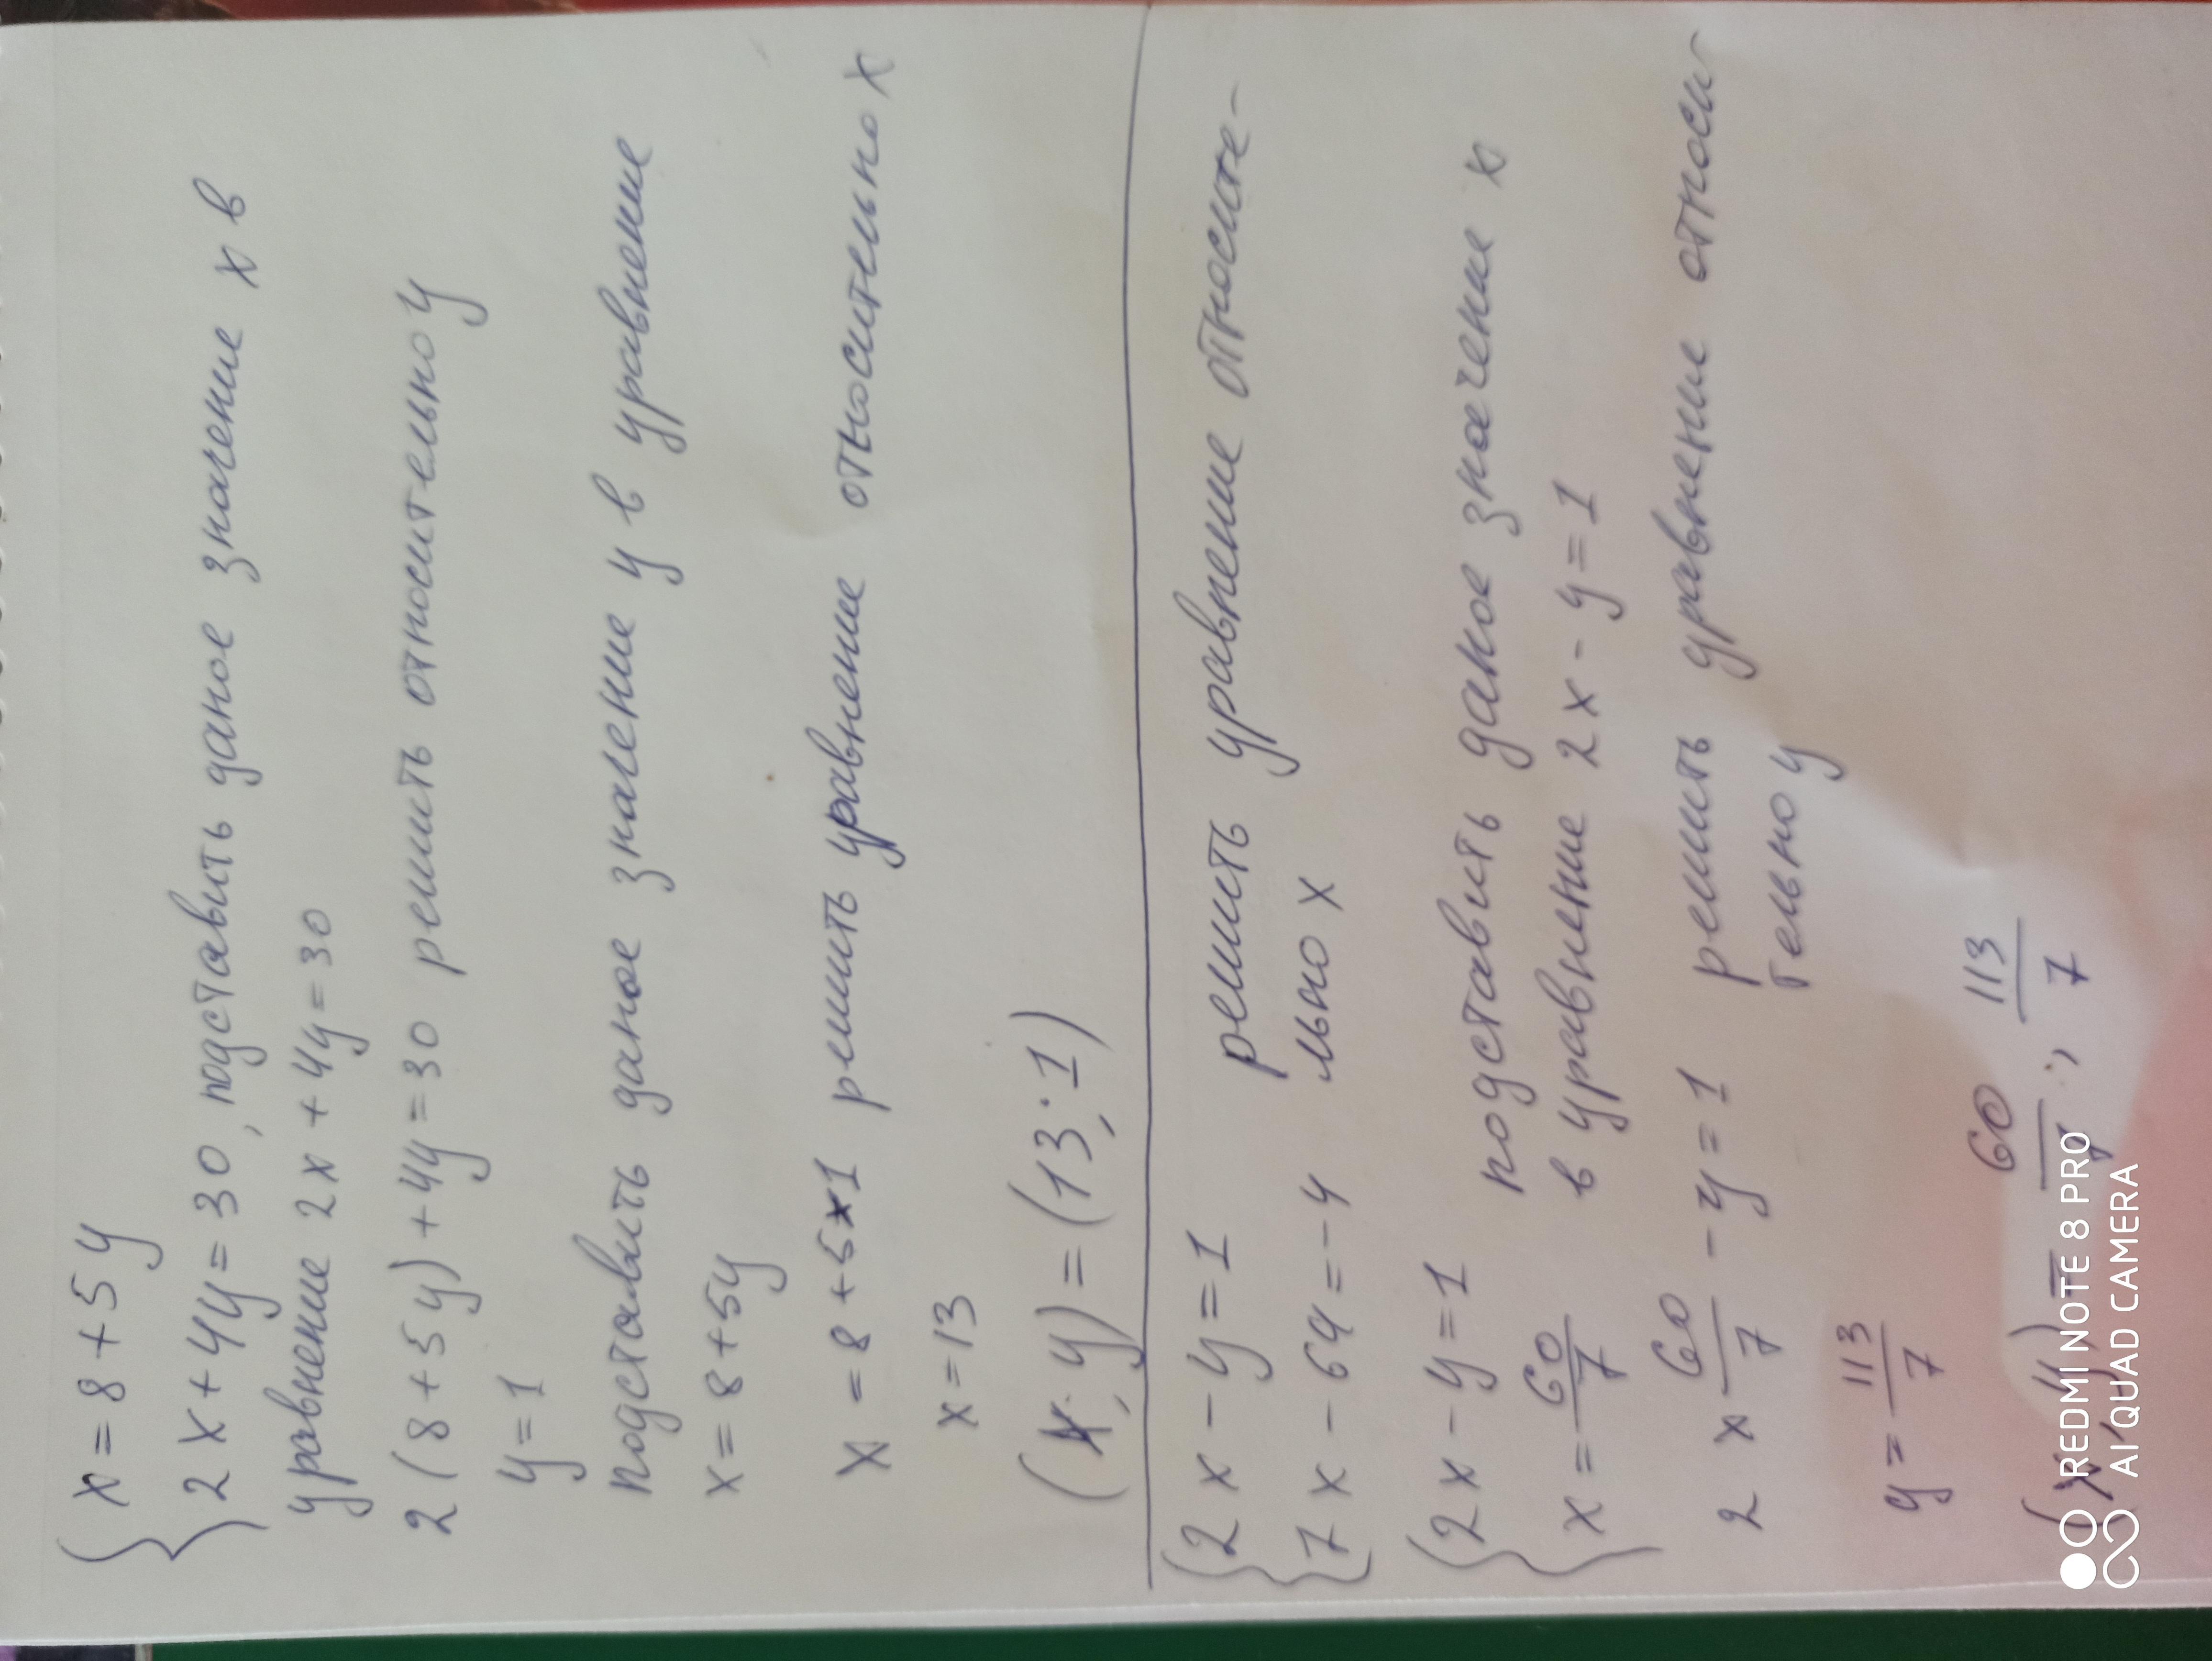 x = 8 + 5y
2x + 4y = 30, подставить даное значение x в
уравнение 2x + 4y = 30
2(8 + 5y) + 4y = 30 решить относительно y
y = 1
подставить даное значение y в уравнение
x = 8 + 5y
x = 8 + 5×1 решить уравнение относительно x
x = 13
(x; y) = (13; 1)
2x - y = 1 решить уравнение относите-
7x - 64 = -4 льно x
2x - y = 1 подставить даное значение x
x = 60/7 в уравнение 2x - y = 1
2 × 60/7 - y = 1 решить уравнение относи
тельно y
y = 113/7
(x; y) = 60/7; 113/7
REDMI NOTE 8 PRO
AI QUAD CAMERA